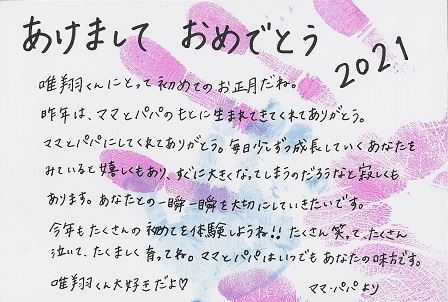 あけまして おめでとう
2021
唯翔くんにとって初めてのお正月だね。
昨年は、ママとパパのもとに生まれてきてくれてありがとう。
ママとパパにしてくれてありがとう。毎日少しずつ成長していくあなたを
みていると嬉しくもあり、すぐに大きくなってしまうのだろうなと寂しくも
あります。あなたとの一瞬一瞬を大切にしていきたいです。
今年もたくさんの初めてを体験しようね!!たくさん笑って、たくさん
泣いて、たくましく育ってね。ママとパパはいつでもあなたの味方です。
唯翔くん大好きだよ♡
ママ・パパより